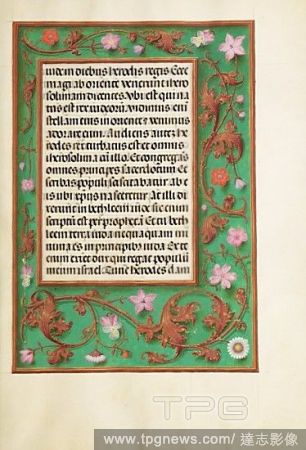 iude in diebus herodis regis Ecce
magi ab oriente venerunt ihero
solimam dicentes. Vbi est qui na
tus est rex iudeorū. vidimus eni
stellam eius in oriente et venimus
adorare eum. Audiens autē he
rodes rex turbatus est et omnis
iherosolima cū illo. Et congregās
omnes principes sacerdotum Et
scribas populi ab e
is ubi xpus nasceretur. At illi di
xerunt in bethleem iude sic enim
scriptū est per prophetā Et tu beth
leem terra iuda nequaquam mi
nima es in principibus iuda. Ex te
enim exiet dux qui regat populū
meum israel. Tunc herodes clam
TPG
www.tpgnews.com/ 達志影像